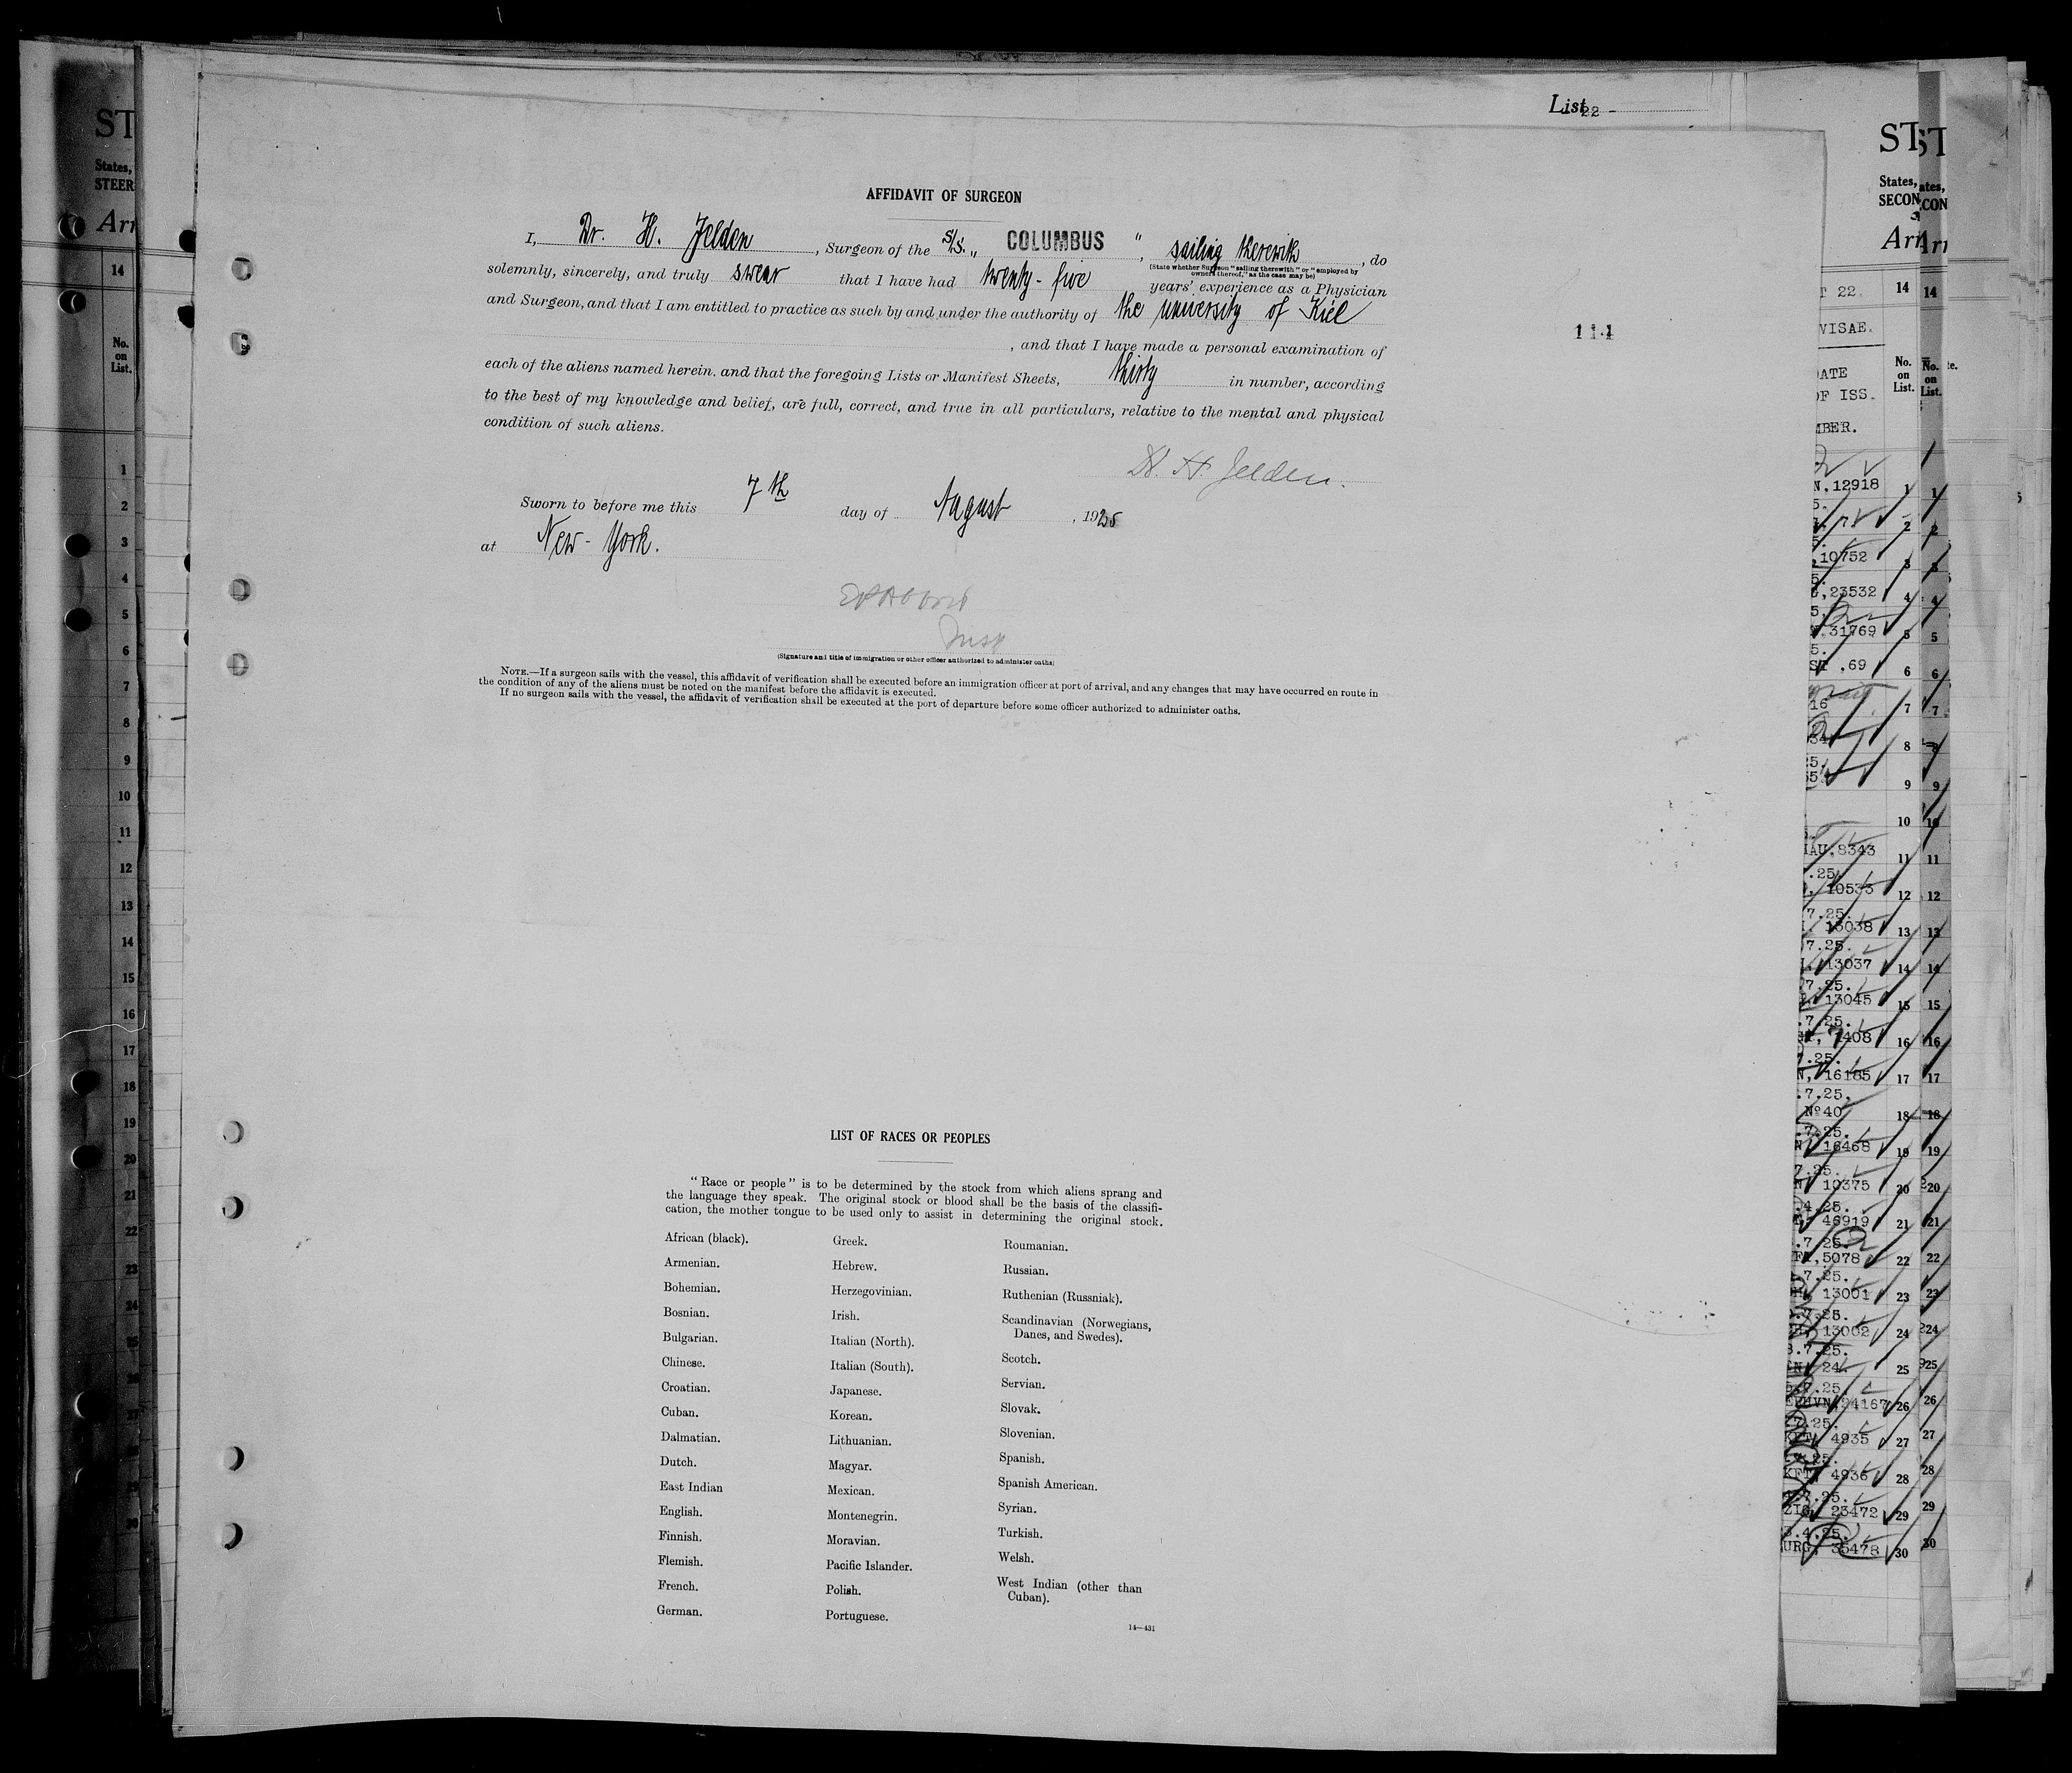 List 22 -
AFFIDAVIT OF SURGEON
I, Dr. H. Jelden, Surgeon of the S/S. „ COLUMBUS ", sailing therewith, do
(State whether Surgeon "sailing therewith" or "employed by
owners thereof," as the case may be)
solemnly, sincerely, and truly swear that I have had twenty-five years' experience as a Physician
and Surgeon, and that I am entitled to practice as such by and under the authority of the university of Kiel
111
, and that I have made a personal examination of
each of the aliens named herein, and that the foregoing Lists or Manifest Sheets, thirty in number, according
to the best of my knowledge and belief, are full, correct, and true in all particulars, relative to the mental and physical
condition of such aliens.
Dr. H. Jelden.
Sworn to before me this 7th day of August, 1925
at New-York.
Insp
(Signature and title of immigration or other officer authorized to administer oaths)
NOTE.—If a surgeon sails with the vessel, this affidavit of verification shall be executed before an immigration officer at port of arrival, and any changes that may have occurred en route in
the condition of any of the aliens must be noted on the manifest before the affidavit is executed.
If no surgeon sails with the vessel, the affidavit of verification shall be executed at the port of departure before some officer authorized to administer oaths.
LIST OF RACES OR PEOPLES
"Race or people" is to be determined by the stock from which aliens sprang and
the language they speak. The original stock or blood shall be the basis of the classifi-
cation, the mother tongue to be used only to assist in determining the original stock.
African (black).
Armenian.
Bohemian.
Bosnian.
Bulgarian.
Chinese.
Croatian.
Cuban.
Dalmatian.
Dutch.
East Indian
English.
Finnish.
Flemish.
French.
German.
Greek.
Hebrew.
Herzegovinian.
Irish.
Italian (North).
Italian (South).
Japanese.
Korean.
Lithuanian.
Magyar.
Mexican.
Montenegrin.
Moravian.
Pacific Islander.
Polish.
Portuguese.
Roumanian.
Russian.
Ruthenian (Russniak).
Scandinavian (Norwegians,
Danes, and Swedes).
Scotch.
Servian.
Slovak.
Slovenian.
Spanish.
Spanish American.
Syrian.
Turkish.
Welsh.
West Indian (other than
Cuban).
14—431